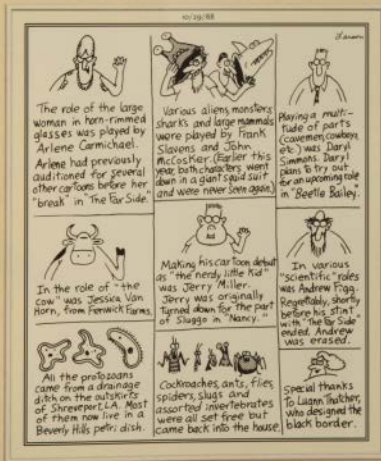 10/29/88
Larson
The role of the large
woman in horn-rimmed
glasses was played by
Arlene Carmichael.
Arlene had previously
auditioned for several
other cartoons before her
"break" in "The Far Side."
Various aliens, monsters,
sharks and large mammals
were played by Frank
Slavens and John
McCosker. (Earlier this
year, both characters went
down in a giant squid suit
and were never seen again.)
Playing a multi-
tude of parts
(cavemen, cowboys,
etc.) was Daryl
Simmons. Daryl
plans to try out
for an upcoming role
in "Beetle Bailey."
In the role of "the
cow" was Jessica Van
Horn, from Fenwick Farms.
Making his cartoon debut
as "the nerdy little kid"
was Jerry Miller.
Jerry was originally
turned down for the part
of Sluggo in "Nancy."
In various
"scientific" roles
was Andrew Figg.
Regrettably, shortly
before his stint
with "The Far Side"
ended, Andrew
was erased.
All the protozoans
came from a drainage
ditch on the outskirts
of Shreveport, LA. Most
of them now live in a
Beverly Hills petri dish.
Cockroaches, ants, flies,
spiders, slugs and
assorted invertebrates
were all set free but
came back into the house.
Special thanks
to Luann Thatcher,
who designed the
black border.